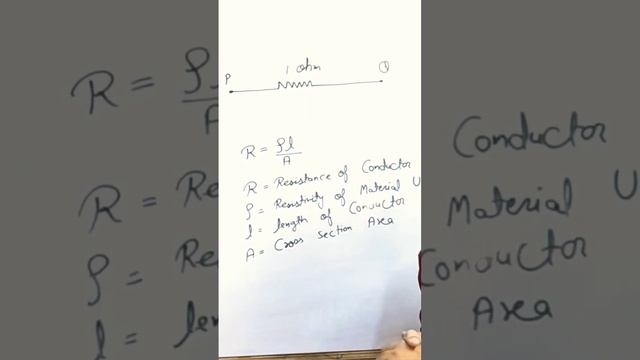 1 ohm
P Q
R = ρl/A
R = Resistance of Conductor
ρ = Resistivity of Material U
l = length of Conductor
A = Cross Section Area